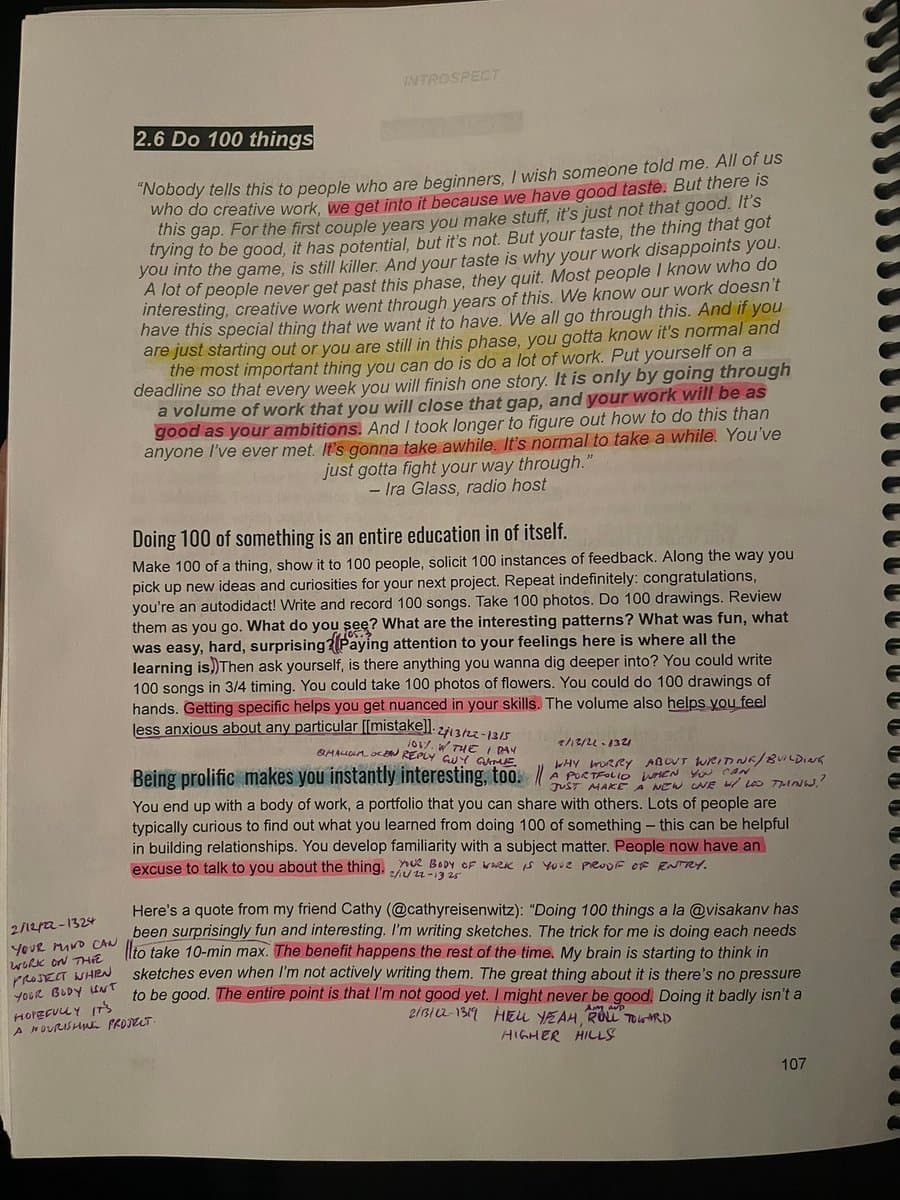 INTROSPECT
2.6 Do 100 things
“Nobody tells this to people who are beginners, I wish someone told me. All of us
who do creative work, we get into it because we have good taste. But there is
this gap. For the first couple years you make stuff, it’s just not that good. It’s
trying to be good, it has potential, but it’s not. But your taste, the thing that got
you into the game, is still killer. And your taste is why your work disappoints you.
A lot of people never get past this phase, they quit. Most people I know who do
interesting, creative work went through years of this. We know our work doesn’t
have this special thing that we want it to have. We all go through this. And if you
are just starting out or you are still in this phase, you gotta know it’s normal and
the most important thing you can do is do a lot of work. Put yourself on a
deadline so that every week you will finish one story. It is only by going through
a volume of work that you will close that gap, and your work will be as
good as your ambitions. And I took longer to figure out how to do this than
anyone I’ve ever met. It’s gonna take awhile. It’s normal to take a while. You’ve
just gotta fight your way through.”
– Ira Glass, radio host
Doing 100 of something is an entire education in of itself.
Make 100 of a thing, show it to 100 people, solicit 100 instances of feedback. Along the way you
pick up new ideas and curiosities for your next project. Repeat indefinitely: congratulations,
you’re an autodidact! Write and record 100 songs. Take 100 photos. Do 100 drawings. Review
them as you go. What do you see? What are the interesting patterns? What was fun, what
was easy, hard, surprising? Paying attention to your feelings here is where all the
learning is. Then ask yourself, is there anything you wanna dig deeper into? You could write
100 songs in 3/4 timing. You could take 100 photos of flowers. You could do 100 drawings of
hands. Getting specific helps you get nuanced in your skills. The volume also helps you feel
less anxious about any particular [[mistake]]. 2/13/22-1315
W THE 1 DAY
REPLY GUY GAME
2/12/22-1321
Being prolific makes you instantly interesting, too.
WHY WORRY ABOUT WRITING/BUILDING
A PORTFOLIO WHEN YOU CAN
JUST MAKE A NEW ONE W/ 100 THINGS?
You end up with a body of work, a portfolio that you can share with others. Lots of people are
typically curious to find out what you learned from doing 100 of something – this can be helpful
in building relationships. You develop familiarity with a subject matter. People now have an
excuse to talk to you about the thing. YOUR BODY OF WORK IS YOUR PROOF OF ENTRY.
Here’s a quote from my friend Cathy (@cathyreisenwitz): “Doing 100 things a la @visakanv has
been surprisingly fun and interesting. I’m writing sketches. The trick for me is doing each needs
to take 10-min max. The benefit happens the rest of the time. My brain is starting to think in
sketches even when I’m not actively writing them. The great thing about it is there’s no pressure
to be good. The entire point is that I’m not good yet. I might never be good. Doing it badly isn’t a
2/12/22-1324
YOUR MIND CAN
WORK ON THE
PROJECT WHEN
YOUR BODY ISNT
HOPEFULLY IT'S
A NOURISHING PROJECT.
2/13/22-1319 HELL YEAH, ROLL TOWARD
HIGHER HILLS
107